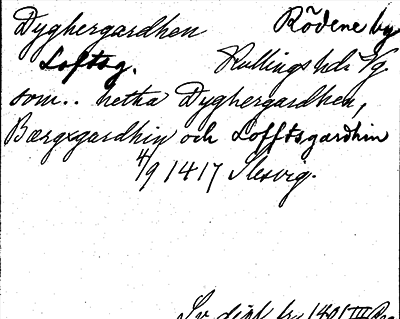 Dyghergardhen Rödene by
Loftsg. Kullings hd. Vg
som.. hetha Dyghergardhen,
Bærgxgardhin och Lofftsgardhin
4/9 1417 Slesvig.
Sv. dipl. fr. 1401 III